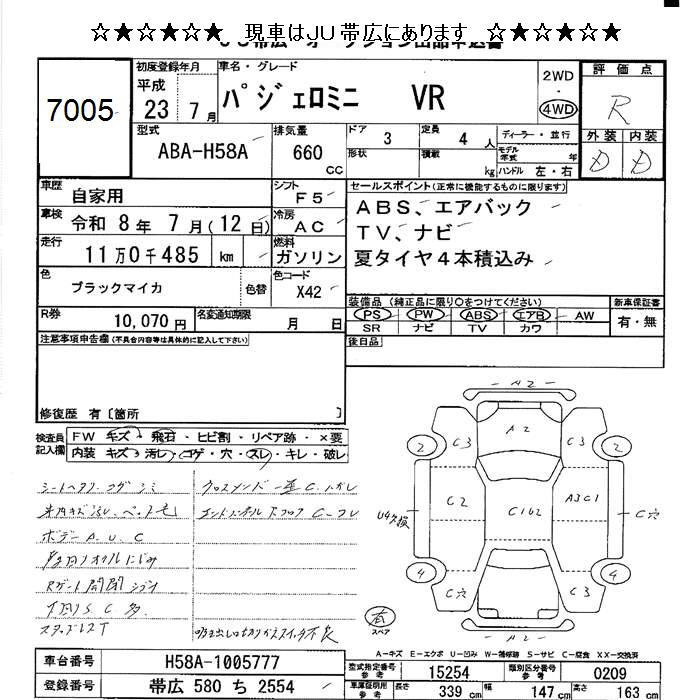 ☆★☆★☆★ 現車はJU帯広にあります ☆★☆★☆★
7005
初度登録年月
平成
23 7月
車名・グレード
パジェロミニ VR
2WD
・
4WD
評価点
R
外装 内装
D D
型式
ABA-H58A
排気量
660 CC
ドア 3
定員 4 人
形状
積載 kg
ディーラー・並行
モデル年式 年
ハンドル 左・右
車歴
自家用
シフト
F5
車検 令和 8年 7月(12日)
冷房
AC
走行
11万0千485 km
燃料
ガソリン
色
ブラックマイカ
色替
色コード
X42
R券
10,070円
名変通知期限
月 日
セールスポイント(正常に機能するものに限ります)
ABS、エアバック
TV、ナビ
夏タイヤ4本積込み
装備品 (純正品に限り○をつけてください)
PS PW ABS エアB AW
SR ナビ TV カワ
新車保証書
有・無
後日品
注意事項申告欄(不具合内容等は具体的に記入して下さい)
修復歴 有〔箇所 〕
検査員記入欄
FW キズ・飛石・ヒビ割・リペア跡・×要
内装 キズ・汚レ・コゲ・穴・スレ・キレ・破レ
シートヘタリ コゲ シミ
ボデー A、U、C
下廻りSC多
スタッドレスT
A2
A2
2 C3 C3 2
C2
C162
A3C1
C穴
4 C穴 C3 4
A2
有
スペア
A-キズ E-エクボ U-凹み W-補修跡 S-サビ C-腐食 XX-交換済
車台番号
H58A-1005777
登録番号
帯広 580 ち 2554
型式指定番号
参考
15254
類別区分番号
参考
0209
車庫証明用
参考
長さ 339 cm
幅 147 cm
高さ 163 cm